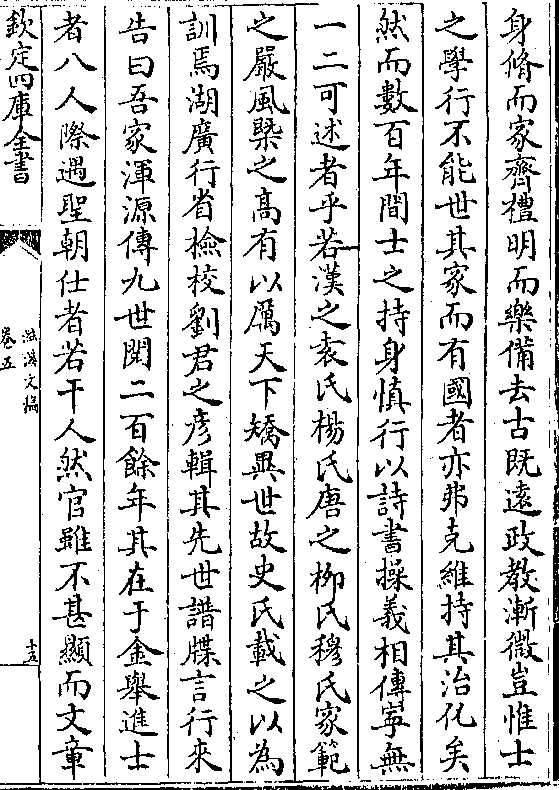 身脩而家齊禮明而樂備去古既逺政教漸微豈惟士
之學行不能世其家而有國者亦弗克維持其治化矣
然而數百年間士之持身慎行以詩書操義相傳寧無
一二可述者乎若漢之袁氏楊氏唐之柳氏穆氏家範
之嚴風槩之髙有以厲天下矯異世故史氏載之以為
訓焉湖廣行省檢校劉君之彦輯其先世譜牒言行來
告曰吾家渾源傳九世閲二百餘年其在于金舉進士
者八人際遇聖朝仕者若干人然官雖不甚顯而文章
欽定四庫全書
滋溪文稿
卷五
十五